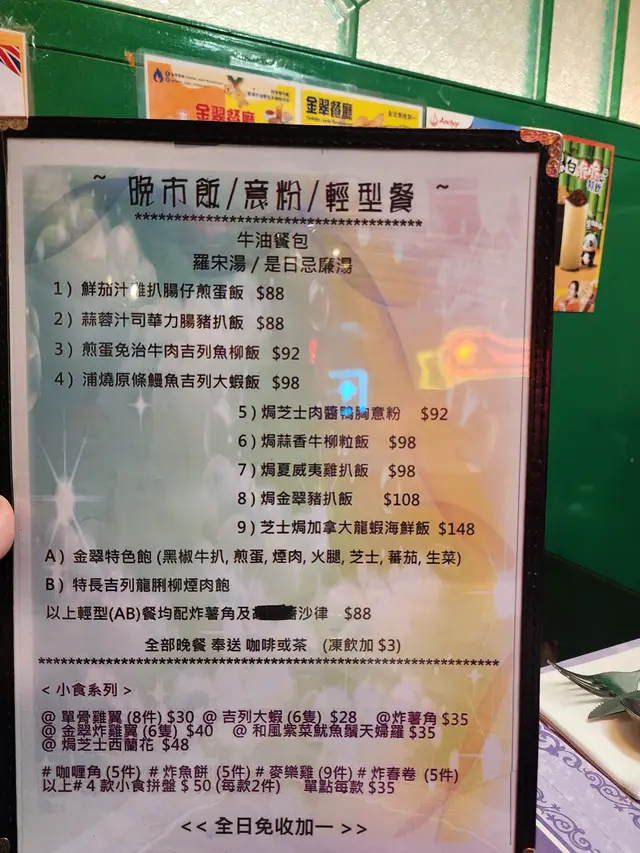 金翠餐廳
金翠餐廳
~ 晚市飯/意粉/輕型餐 ~
************************************
牛油餐包
羅宋湯 / 是日忌廉湯
1) 鮮茄汁雞扒腸仔煎蛋飯 $88
2) 蒜蓉汁司華力腸豬扒飯 $88
3) 煎蛋免治牛肉吉列魚柳飯 $92
4) 浦燒原條鰻魚吉列大蝦飯 $98
5) 焗芝士肉醬鴨胸意粉 $92
6) 焗蒜香牛柳粒飯 $98
7) 焗夏威夷雞扒飯 $98
8) 焗金翠豬扒飯 $108
9) 芝士焗加拿大龍蝦海鮮飯 $148
A) 金翠特色飽 (黑椒牛扒, 煎蛋, 煙肉, 火腿, 芝士, 蕃茄, 生菜)
B) 特長吉列龍脷柳煙肉飽
以上輕型(AB)餐均配炸薯角及 沙律 $88
全部晚餐 奉送 咖啡或茶 (凍飲加 $3)
************************************************************
< 小食系列 >
@ 單骨雞翼 (8件) $30 @ 吉列大蝦 (6隻) $28 @炸薯角 $35
@ 金翠炸雞翼 (6隻) $40 @ 和風紫菜魷魚鬚天婦羅 $35
@ 焗芝士西蘭花 $48
# 咖喱角 (5件) # 炸魚餅 (5件) # 麥樂雞 (9件) # 炸春卷 (5件)
以上# 4 款小食拼盤 $ 50 (每款2件) 單點每款 $35
<< 全日免收加一 >>